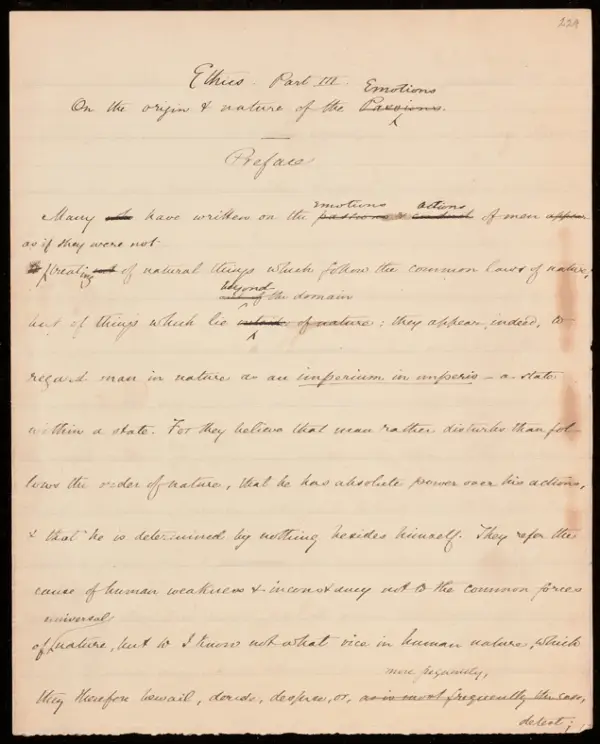 224
Ethics. Part III.
Emotions
On the origin & nature of the Passions.
Preface
emotions actions
Many who have written on the passions & conduct of men appear
as if they were not
treating of natural things which follow the common laws of nature,
beyond
out of the domain
but of things which lie outside of nature: they appear, indeed, to
regard man in nature as an imperium in imperio – a state
within a state. For they believe that man rather disturbs than fol-
lows the order of nature, that he has absolute power over his actions,
& that he is determined by nothing besides himself. They refer the
cause of human weakness & inconstancy not to the common forces
universal
of nature, but to I know not what vice in human nature, which
more frequently,
they therefore bewail, deride, despise, or, as is most frequently the case,
detest;